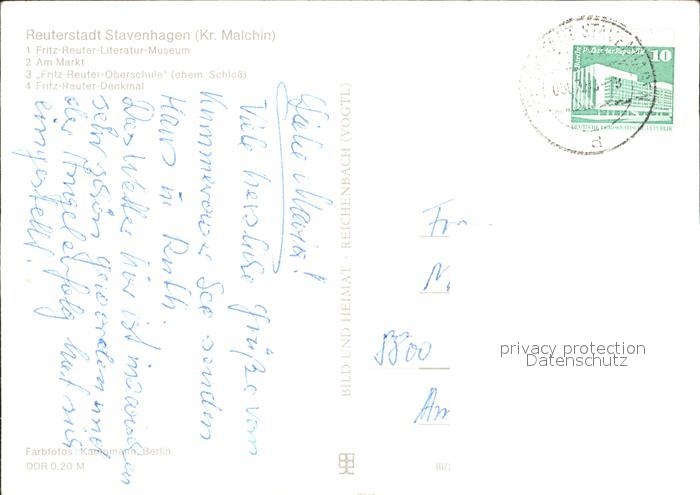 Reuterstadt Stavenhagen (Kr. Malchin)
1 Fritz-Reuter-Literatur-Museum
2 Am Markt
3 „Fritz-Reuter-Oberschule“ (ehem. Schloß)
4 Fritz-Reuter-Denkmal
Maria!
Viele herzliche Grüße vom
Kummerower See senden
Hans in Ruth.
Das Wetter hier ist inzwischen
sehr schön geworden und
der Angelerfolg hat sich
eingestellt.
Farbfotos Kampmann, Berlin
DDR 0,20 M
BILD UND HEIMAT · REICHENBACH (VOGTL)
III/
10
Berlin Palast der Republik
DEUTSCHE DEMOKRATISCHE REPUBLIK
d
Fr
N.
5300
Am
privacy protection
Datenschutz